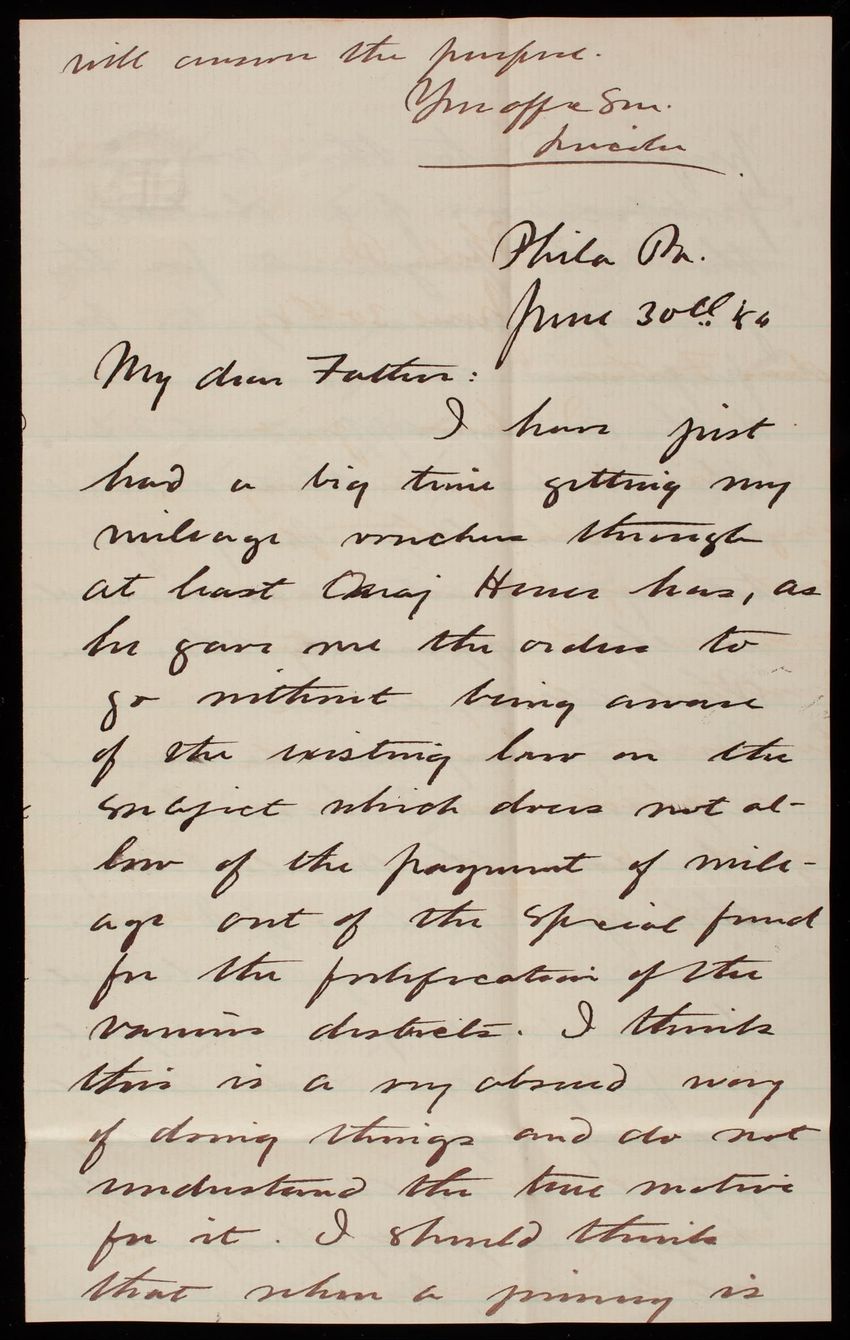 will answer the purpose.
Your aff. Son.
Lincoln
Phila Pa.
June 30th 80
My dear Father:
I have just
had a big time getting my
mileage voucher through
at least Maj Heuer has, as
he gave me the orders to
go without being aware
of the existing law on the
subject which does not al-
low of the payment of mile-
age out of the special fund
for the fortification of the
various districts. I think
this is a very absurd way
of doing things and do not
understand the true motive
for it. I should think
that when a journey is